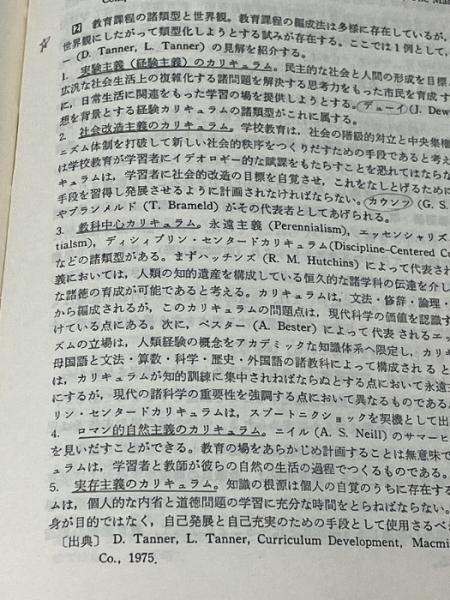 ② 教育課程の諸類型と世界観。教育課程の編成法は多様に存在しているが,
世界観にしたがって類型化しようとする試みが存在する。ここでは1例として,
— (D. Tanner, L. Tanner) の見解を紹介する。
1. 実験主義(経験主義)のカリキュラム。民主的な社会と人間の形成を目標
広汎な社会生活上の複雑化する諸問題を解決する思考力をもった市民を育成す
に, 日常生活に関連をもった学習の場を提供しようとする。デューイ(J. Dew
想を背景とする経験カリキュラムの諸類型がこれに属する。
2. 社会改造主義のカリキュラム。学校教育は, 社会の階級的対立と中央集権
ニズム体制を打破して新しい社会的秩序をつくりだすための手段であると考え
は学校教育が学習者にイデオロギー的な賦課をもたらすことを恐れてはならな
キュラムは, 学習者に社会的改造の目標を自覚させ, これをなしとげるために
手段を習得し発展させるように計画されなければならない。カウンツ(G. S.
やブランメルド (T. Brameld) がその代表者としてあげられる。
3. 教科中心カリキュラム。永遠主義 (Perennialism), エッセンシャリズ
tialsm), ディシィプリン・センタードカリキュラム(Discipline-Centered Cu
などの諸類型がある。まずハッチンズ (R. M. Hutchins) によって代表され
義においては, 人類の知的遺産を構成している恒久的な諸学科の伝達を介し
な諸徳の育成が可能であると考える。カリキュラムは, 文法・修辞・論理・
から編成されるが, このカリキュラムの問題点は, 現代科学の価値を認識す
けている点にある。次に, ベスター (A. Bester) によって代表されるエッ
ズムの立場は, 人類経験の概念をアカデミックな知識体系へ限定し, カリキ
母国語と文法・算数・科学・歴史・外国語の諸教科によって構成されると
は, カリキュラムが知的訓練に集中されねばならぬとする点において永遠主
にするが, 現代の諸科学の重要性を強調する点において異なるものである。
リン・センタードカリキュラムは, スプートニクショックを契機として出
4. ロマン的自然主義のカリキュラム。ニイル (A. S. Neill) のサマーヒ
を見いだすことができる。教育の場をあらかじめ計画することは無意味で
ュラムは, 学習者と教師が彼らの自然の生活の過程でつくるものである。
5. 実存主義のカリキュラム。知識の根源は個人の自覚のうちに存在する
ムは, 個人的な内省と道徳問題の学習に充分な時間をとらねばならない。
身が目的ではなく, 自己発展と自己充実のための手段として使用さるべ
〔出典〕 D. Tanner, L. Tanner, Curriculum Development, Macmi
Co., 1975.